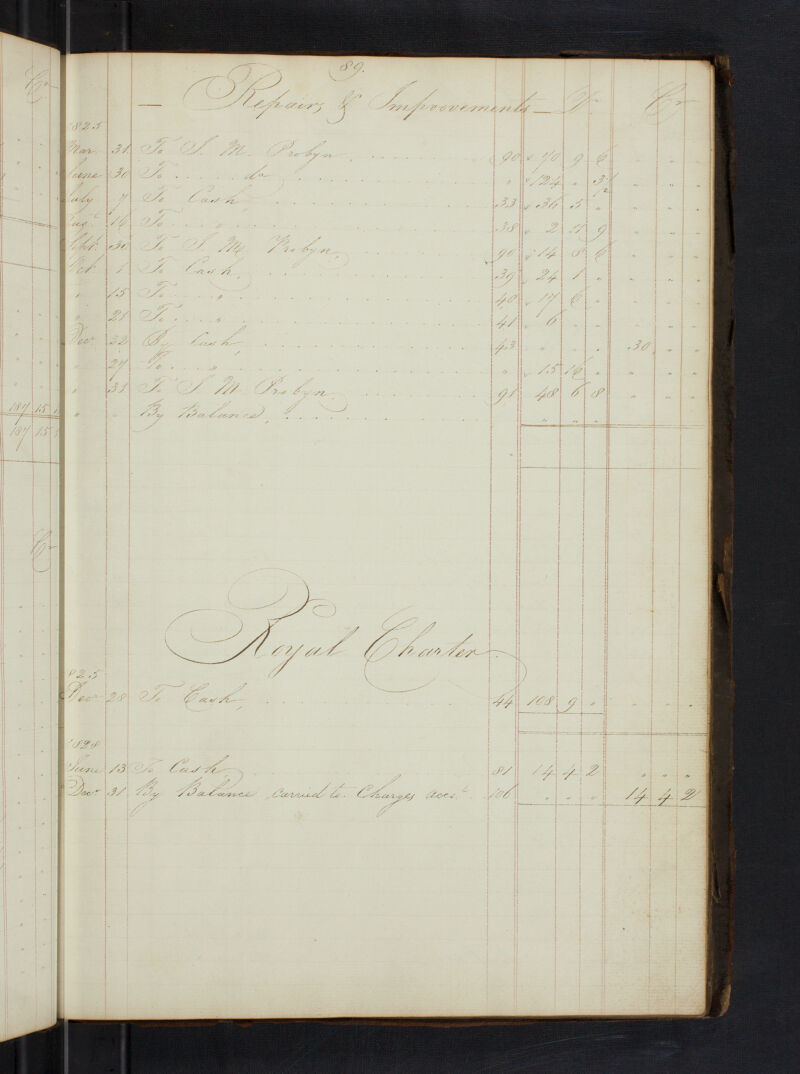 Cr
187 15
187 15
Cr
89.
— Repairs & Improovements — Dr Cr
1825
Mar 31 To S. M. Probyn 90 70 9 6
June 30 To do " 124 " 3½
July 7 To Cash 33 36 5 "
Augt 16 To " 38 2 11 9
Sept. 30 To S. M. Probyn 90 14 8 6
Oct. 1 To Cash 39 24 1 "
" 15 To " 40 17 6 "
" 21 To " 41 6 " "
Decr 22 By Cash 43 30 " "
" 27 To " " 15 16 "
" 31 To S. M. Probyn 91 48 6 8
" " By Balance
Royal Charter
1825
Decr 28 To Cash 44 108 9 "
1828
June 13 To Cash 81 14 4 2
Decr 31 By Balance carried to Charges acct. 106 14 4 2